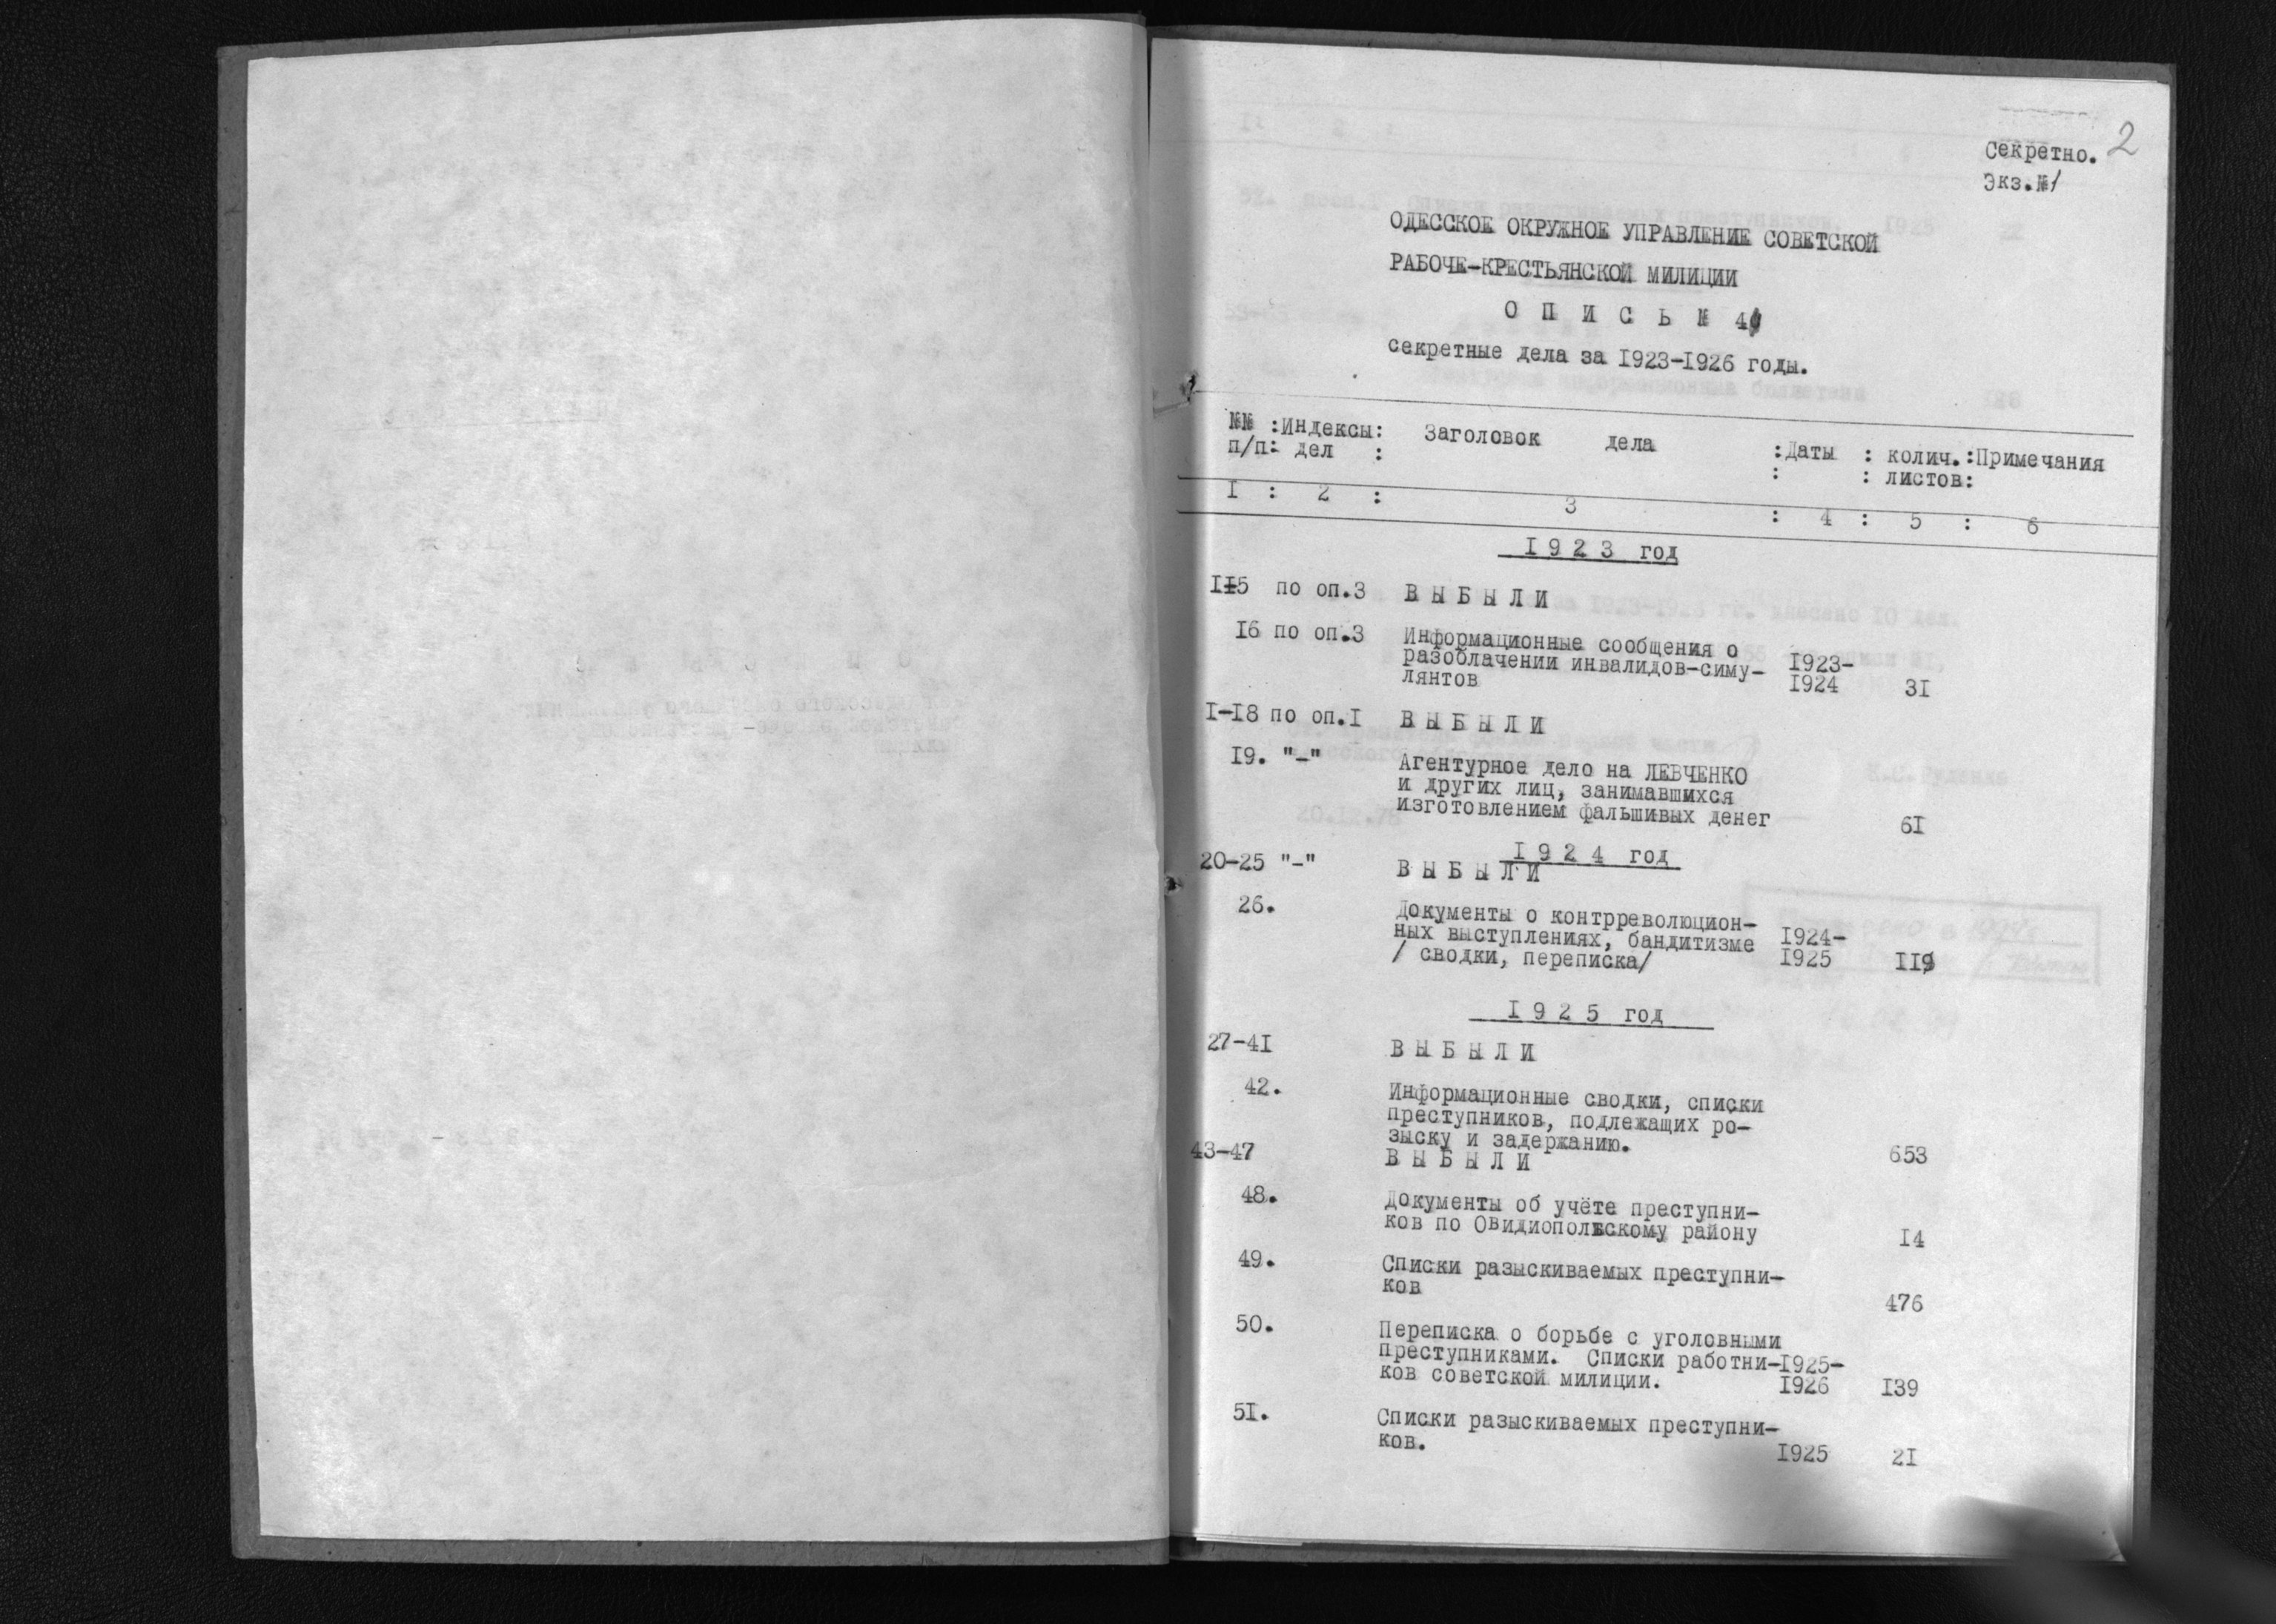 2
Секретно.
Экз.№1
ОДЕССКОЕ ОКРУЖНОЕ УПРАВЛЕНИЕ СОВЕТСКОЙ
РАБОЧЕ-КРЕСТЬЯНСКОЙ МИЛИЦИИ
О П И С Ь №
секретные дела за 1923-1926 годы.
№№ :Индексы: Заголовок дела :Даты : колич.:Примечания
п/п: дел : : : листов:
I : 2 : 3 : 4 : 5 : 6
I 9 2 3 год
по оп.3 В Ы Б Ы Л И
I6 по оп.3 Информационные сообщения о
разоблачении инвалидов-симу- I923-
лянтов I924 3I
I-I8 по оп.I В Ы Б Ы Л И
I9. "-" Агентурное дело на ЛЕВЧЕНКО
и других лиц, занимавшихся
изготовлением фальшивых денег 6I
I 9 2 4 год
20-25 "-" В Ы Б Ы Л И
26. Документы о контрреволюцион-
ных выступлениях, бандитизме I924-
/ сводки, переписка/ I925 II9
I 9 2 5 год
27-4I В Ы Б Ы Л И
42. Информационные сводки, списки
преступников, подлежащих ро-
зыску и задержанию. 653
43-47 В Ы Б Ы Л И
48. Документы об учёте преступни-
ков по Овидиопольскому району I4
49. Списки разыскиваемых преступни-
ков 476
50. Переписка о борьбе с уголовными
преступниками. Списки работни-I925-
ков советской милиции. I926 I39
5I. Списки разыскиваемых преступни-
ков. I925 2I